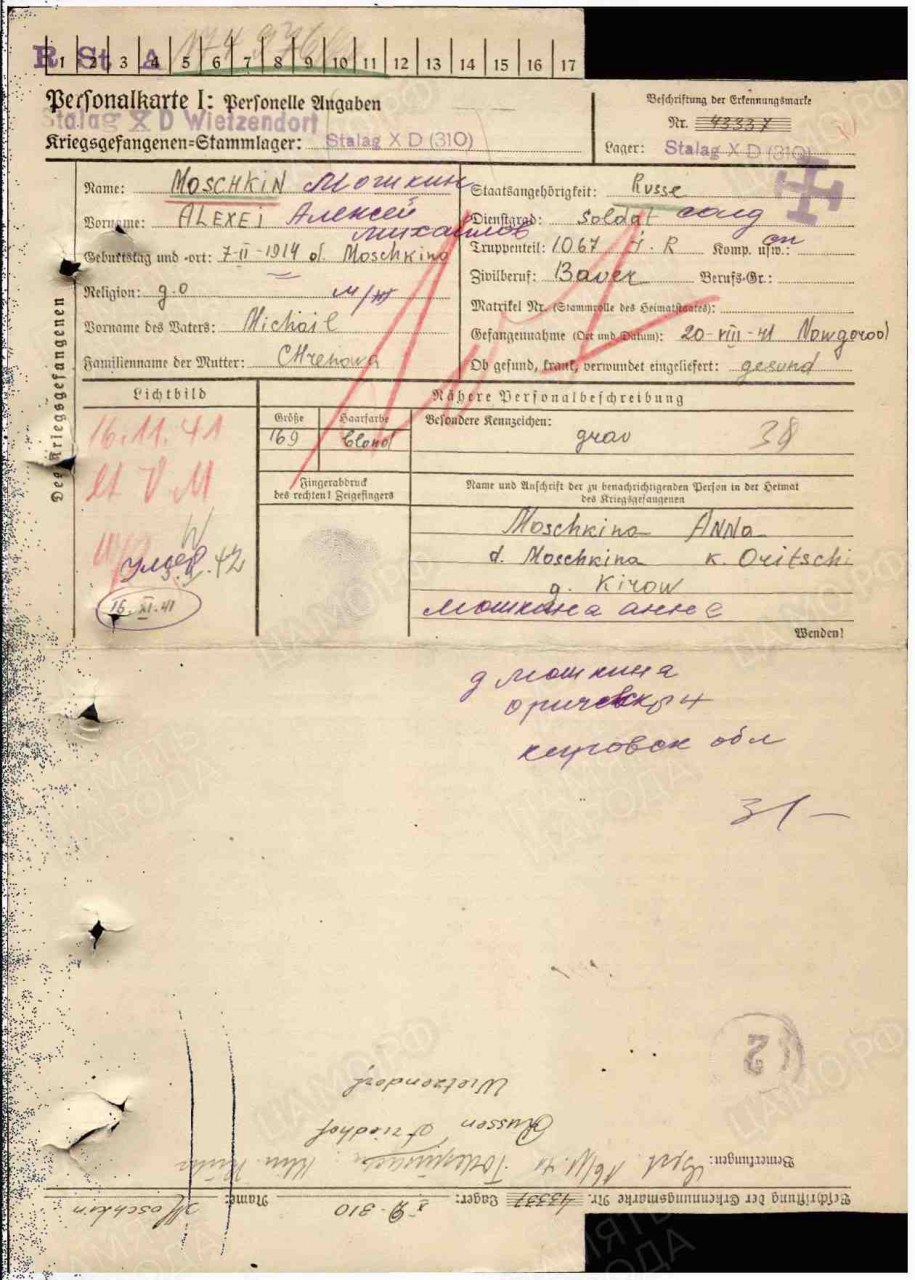 R St A 174 976
1 2 3 4 5 6 7 8 9 10 11 12 13 14 15 16 17
Personalkarte I: Personelle Angaben
Stalag X D Wietzendorf
Kriegsgefangenen=Stammlager: Stalag X D (310)
Beschriftung der Erkennungsmarke
Nr. 43337
Lager: Stalag X D (310)
Des Kriegsgefangenen
Name: MOSCHKIN Мошкин
Vorname: ALEXEI Алексей
Михайлов
Geburtstag und =ort: 7-II-1914 d. Moschkina
Religion: g.o
Vorname des Vaters: Michail
Familienname der Mutter: Chrenowa
Staatsangehörigkeit: Russe
Dienstgrad: Soldat солд
Truppenteil: 1067 J.R Komp. usw.: сп
Zivilberuf: Bauer Berufs=Gr.:
Matrikel Nr. (Stammrolle des Heimatstaates):
Gefangennahme (Ort und Datum): 20-VIII-41 Nowgorod
Ob gesund, krank, verwundet eingeliefert: gesund
Lichtbild
16.11.41
16.XI.41
Nähere Personalbeschreibung
Größe Haarfarbe
169 blond
Besondere Kennzeichen:
grau 38
Fingerabdruck
des rechten! Zeigefingers
Name und Anschrift der zu benachrichtigenden Person in der Heimat
des Kriegsgefangenen
Moschkina ANNA
d. Moschkina k. Oritschi
g. Kirow
Мошкина Анне
Wenden!
д Мошкина
Оричевск р н
Кировск обл
31-
2
Wietzendorf
Russen Friedhof
Bemerkungen:
Beschriftung der Erkennungsmarke Nr. 43337 Lager: X D. 310 Name: Moschkin